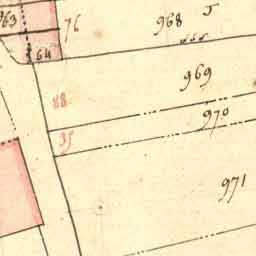 963
76
968
64
969
88
970
35
971